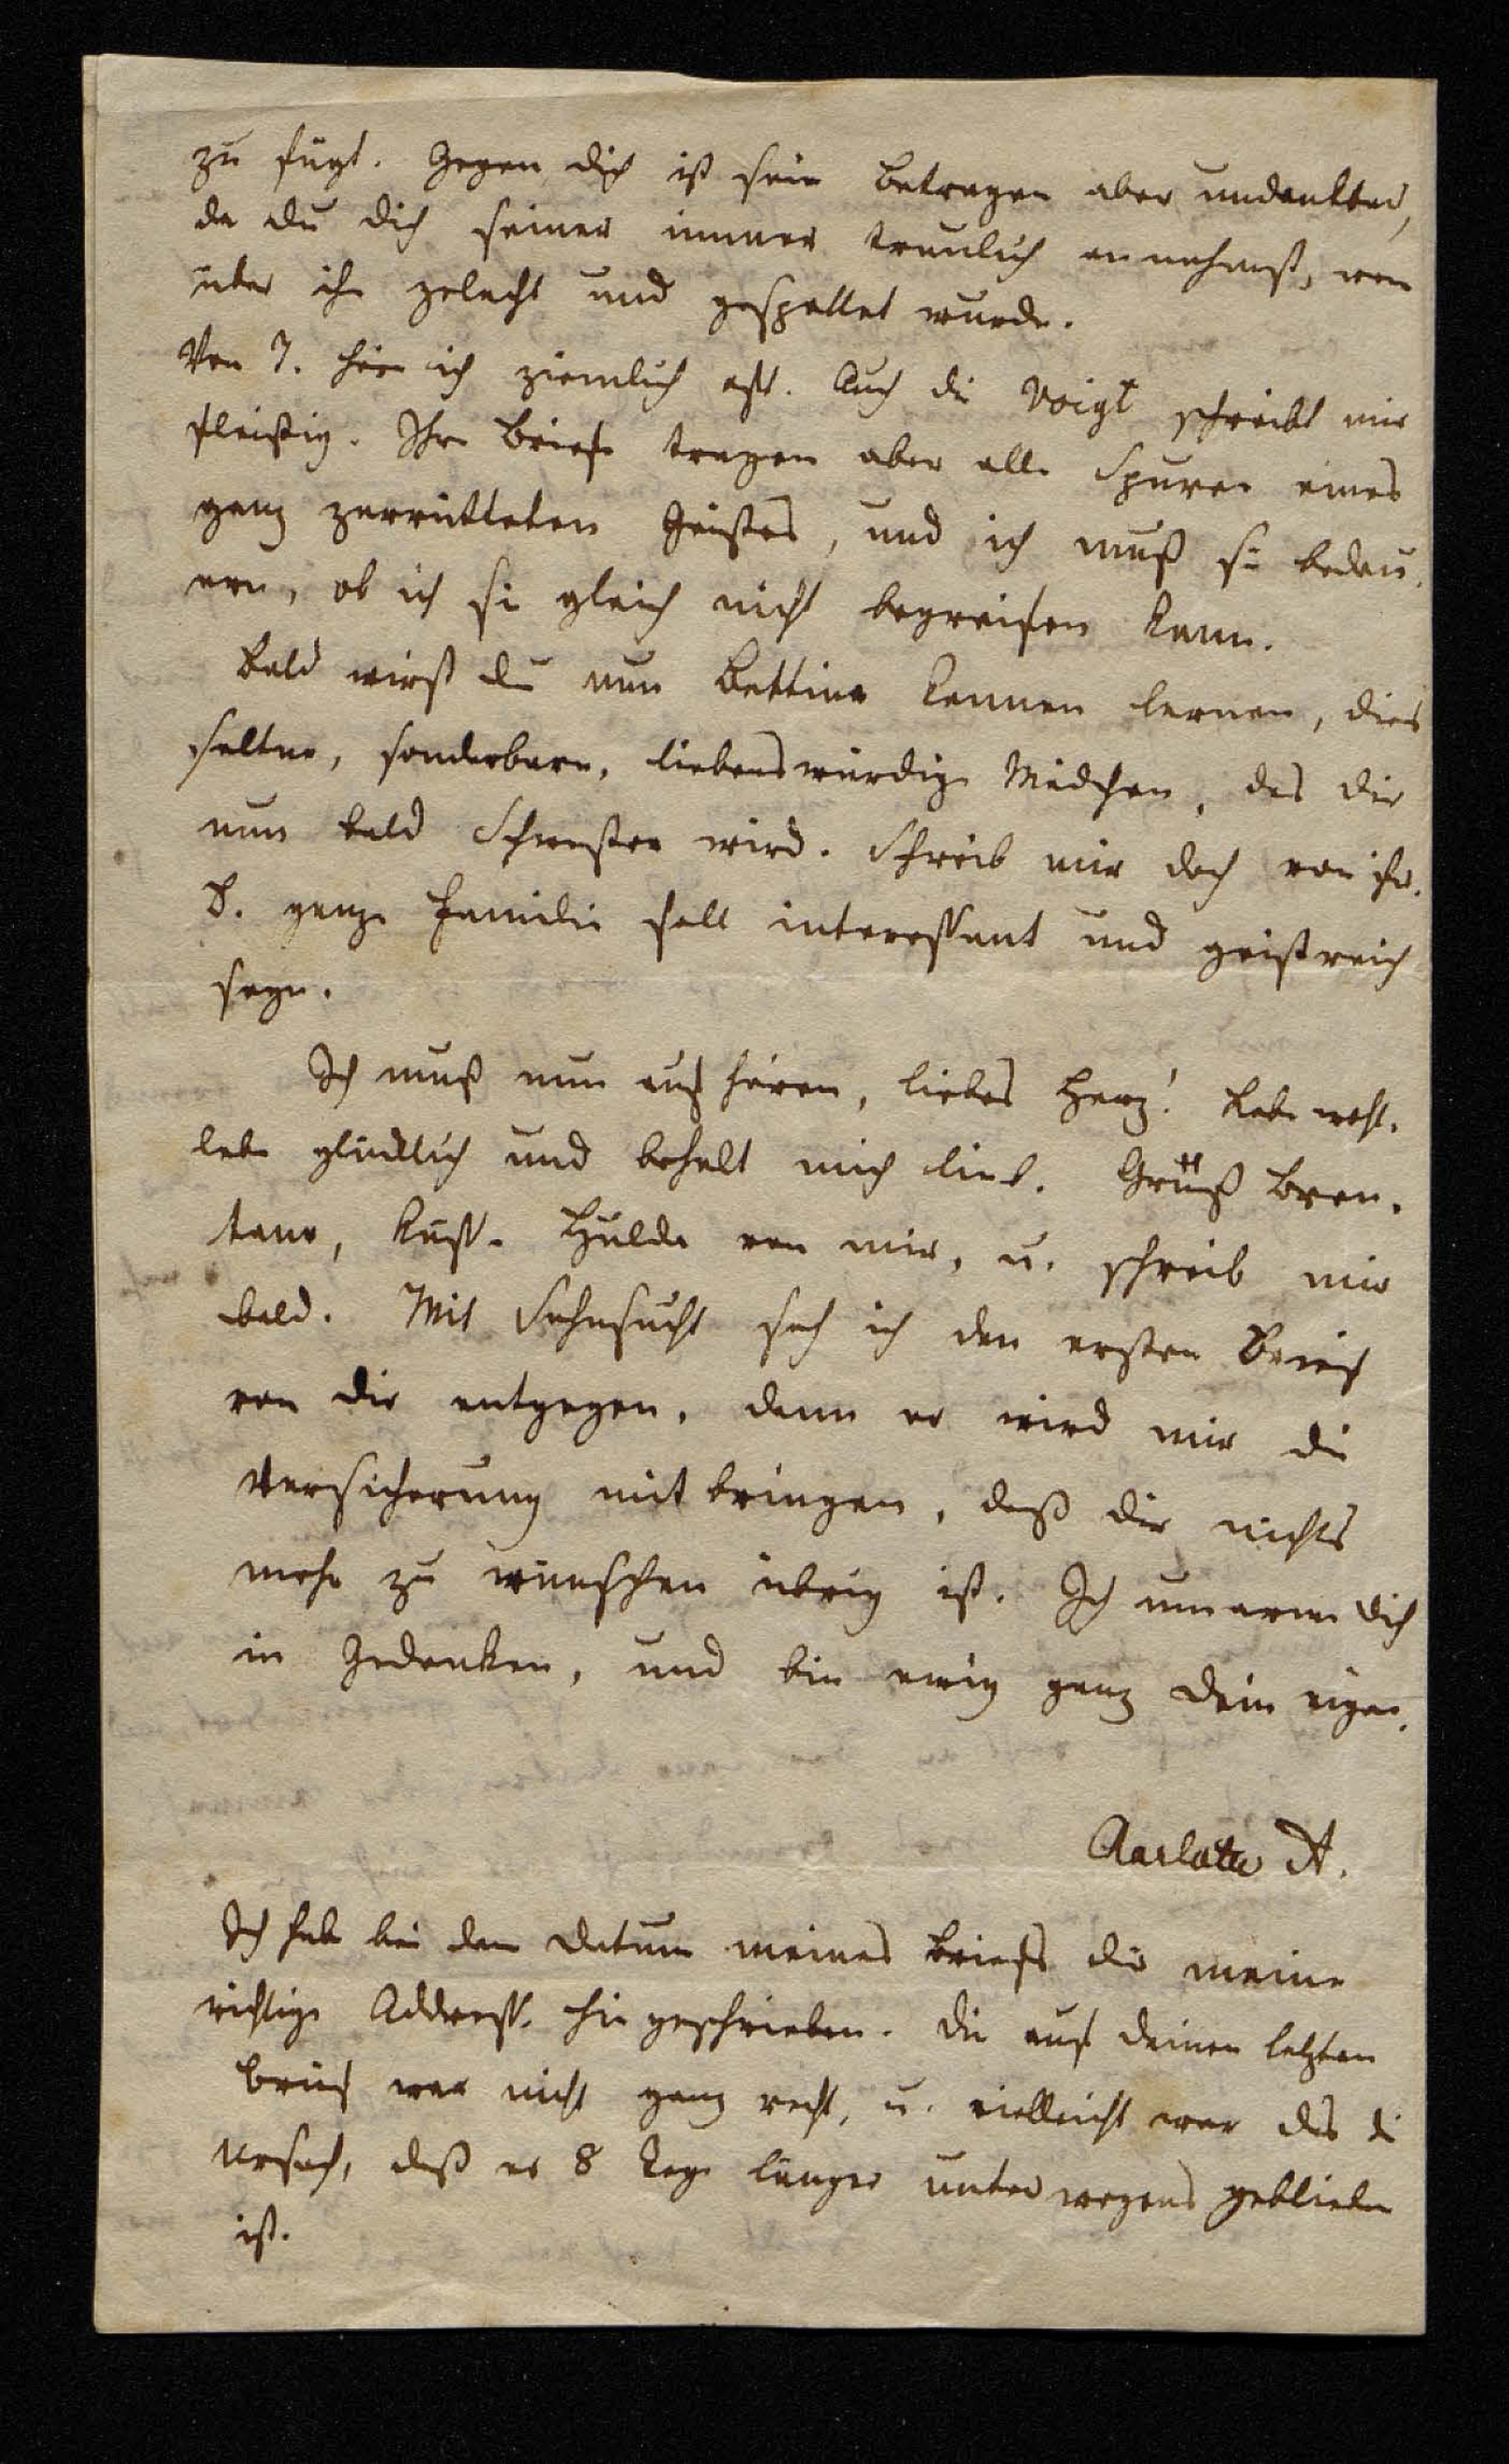 zu fügt. Gegen dich ist sein Betragen aber undankbar,
da du dich seiner immer treulich annahmst, wen
über ihn gelacht und gespottet wurde.
Von J. höre ich ziemlich oft. Auch die Voigt schreibt mir
fleißig. Ihre Briefe tragen aber alle Spuren eines
ganz zerrütteten Geistes, und ich muß sie bedau-
ern, ob ich sie gleich nicht begreifen kann.
Bald wirst du nun Bettina kennen lernen, dies
seltne, sonderbare, liebenswürdige Mädchen, das dir
nun bald Schwester wird. Schreib mir doch von ihr.
B. ganze Familie soll interessant und geistreich
seyn.
Ich muß nun aufhören, liebes Herz! Lebe wohl,
lebe glücklich und behalt mich lieb. Grüß Bren-
tano, küsse Hulda von mir, u. schreib mir
bald. Mit Sehnsucht seh ich den ersten Brief
von dir entgegen, denn er wird mir die
Versicherung mitbringen, daß dir nichts
mehr zu wünschen übrig ist. Ich umarme dich
in Gedanken, und bin ewig ganz dein eigen.
Charlotte A.
Ich habe bei dem Datum meines Briefs dir meine
richtige Addresse hingeschrieben. Die auf deinen letzten
Brief war nicht ganz recht, u. vielleicht war das die
Ursach, daß er 8 Tage länger unterwegens geblieben
ist.